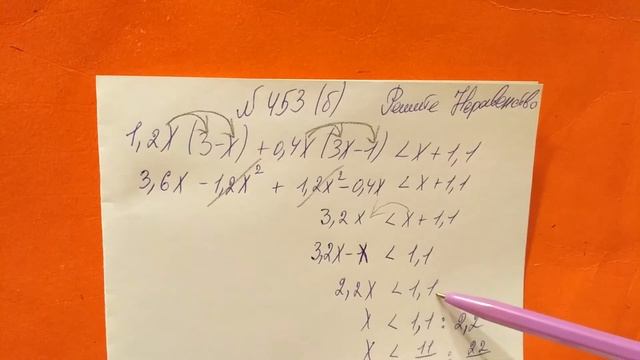 № 453 (б) Решите Неравенство
1,2x (3-x) + 0,4x (3x-1) < x + 1,1
3,6x - 1,2x² + 1,2x² - 0,4x < x + 1,1
3,2x < x + 1,1
3,2x - x < 1,1
2,2x < 1,1
x < 1,1 : 2,2
x < 11 : 22